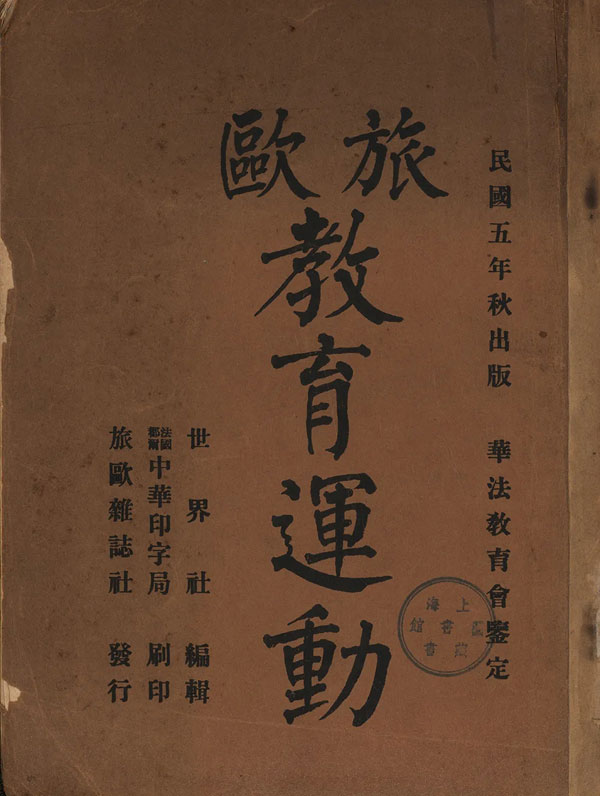 民國五年秋出版 華法教育會鑒定
旅歐
教育運動
世界社 編輯
法國都爾中華印字局 刷印
旅歐雜誌社 發行
上海圖書館藏書